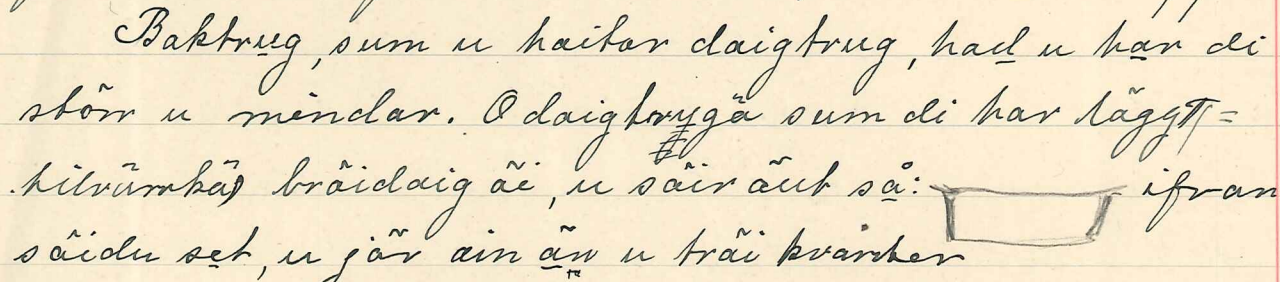 Baktrug, sum u haitar daigtrug, had u har di
störr u mindar. O daigtrygä sum di har läggt=
tilrūmkä) brōidaig äi, u säir äut så: ifran
säidu set, u jär ain än u träi kvarter